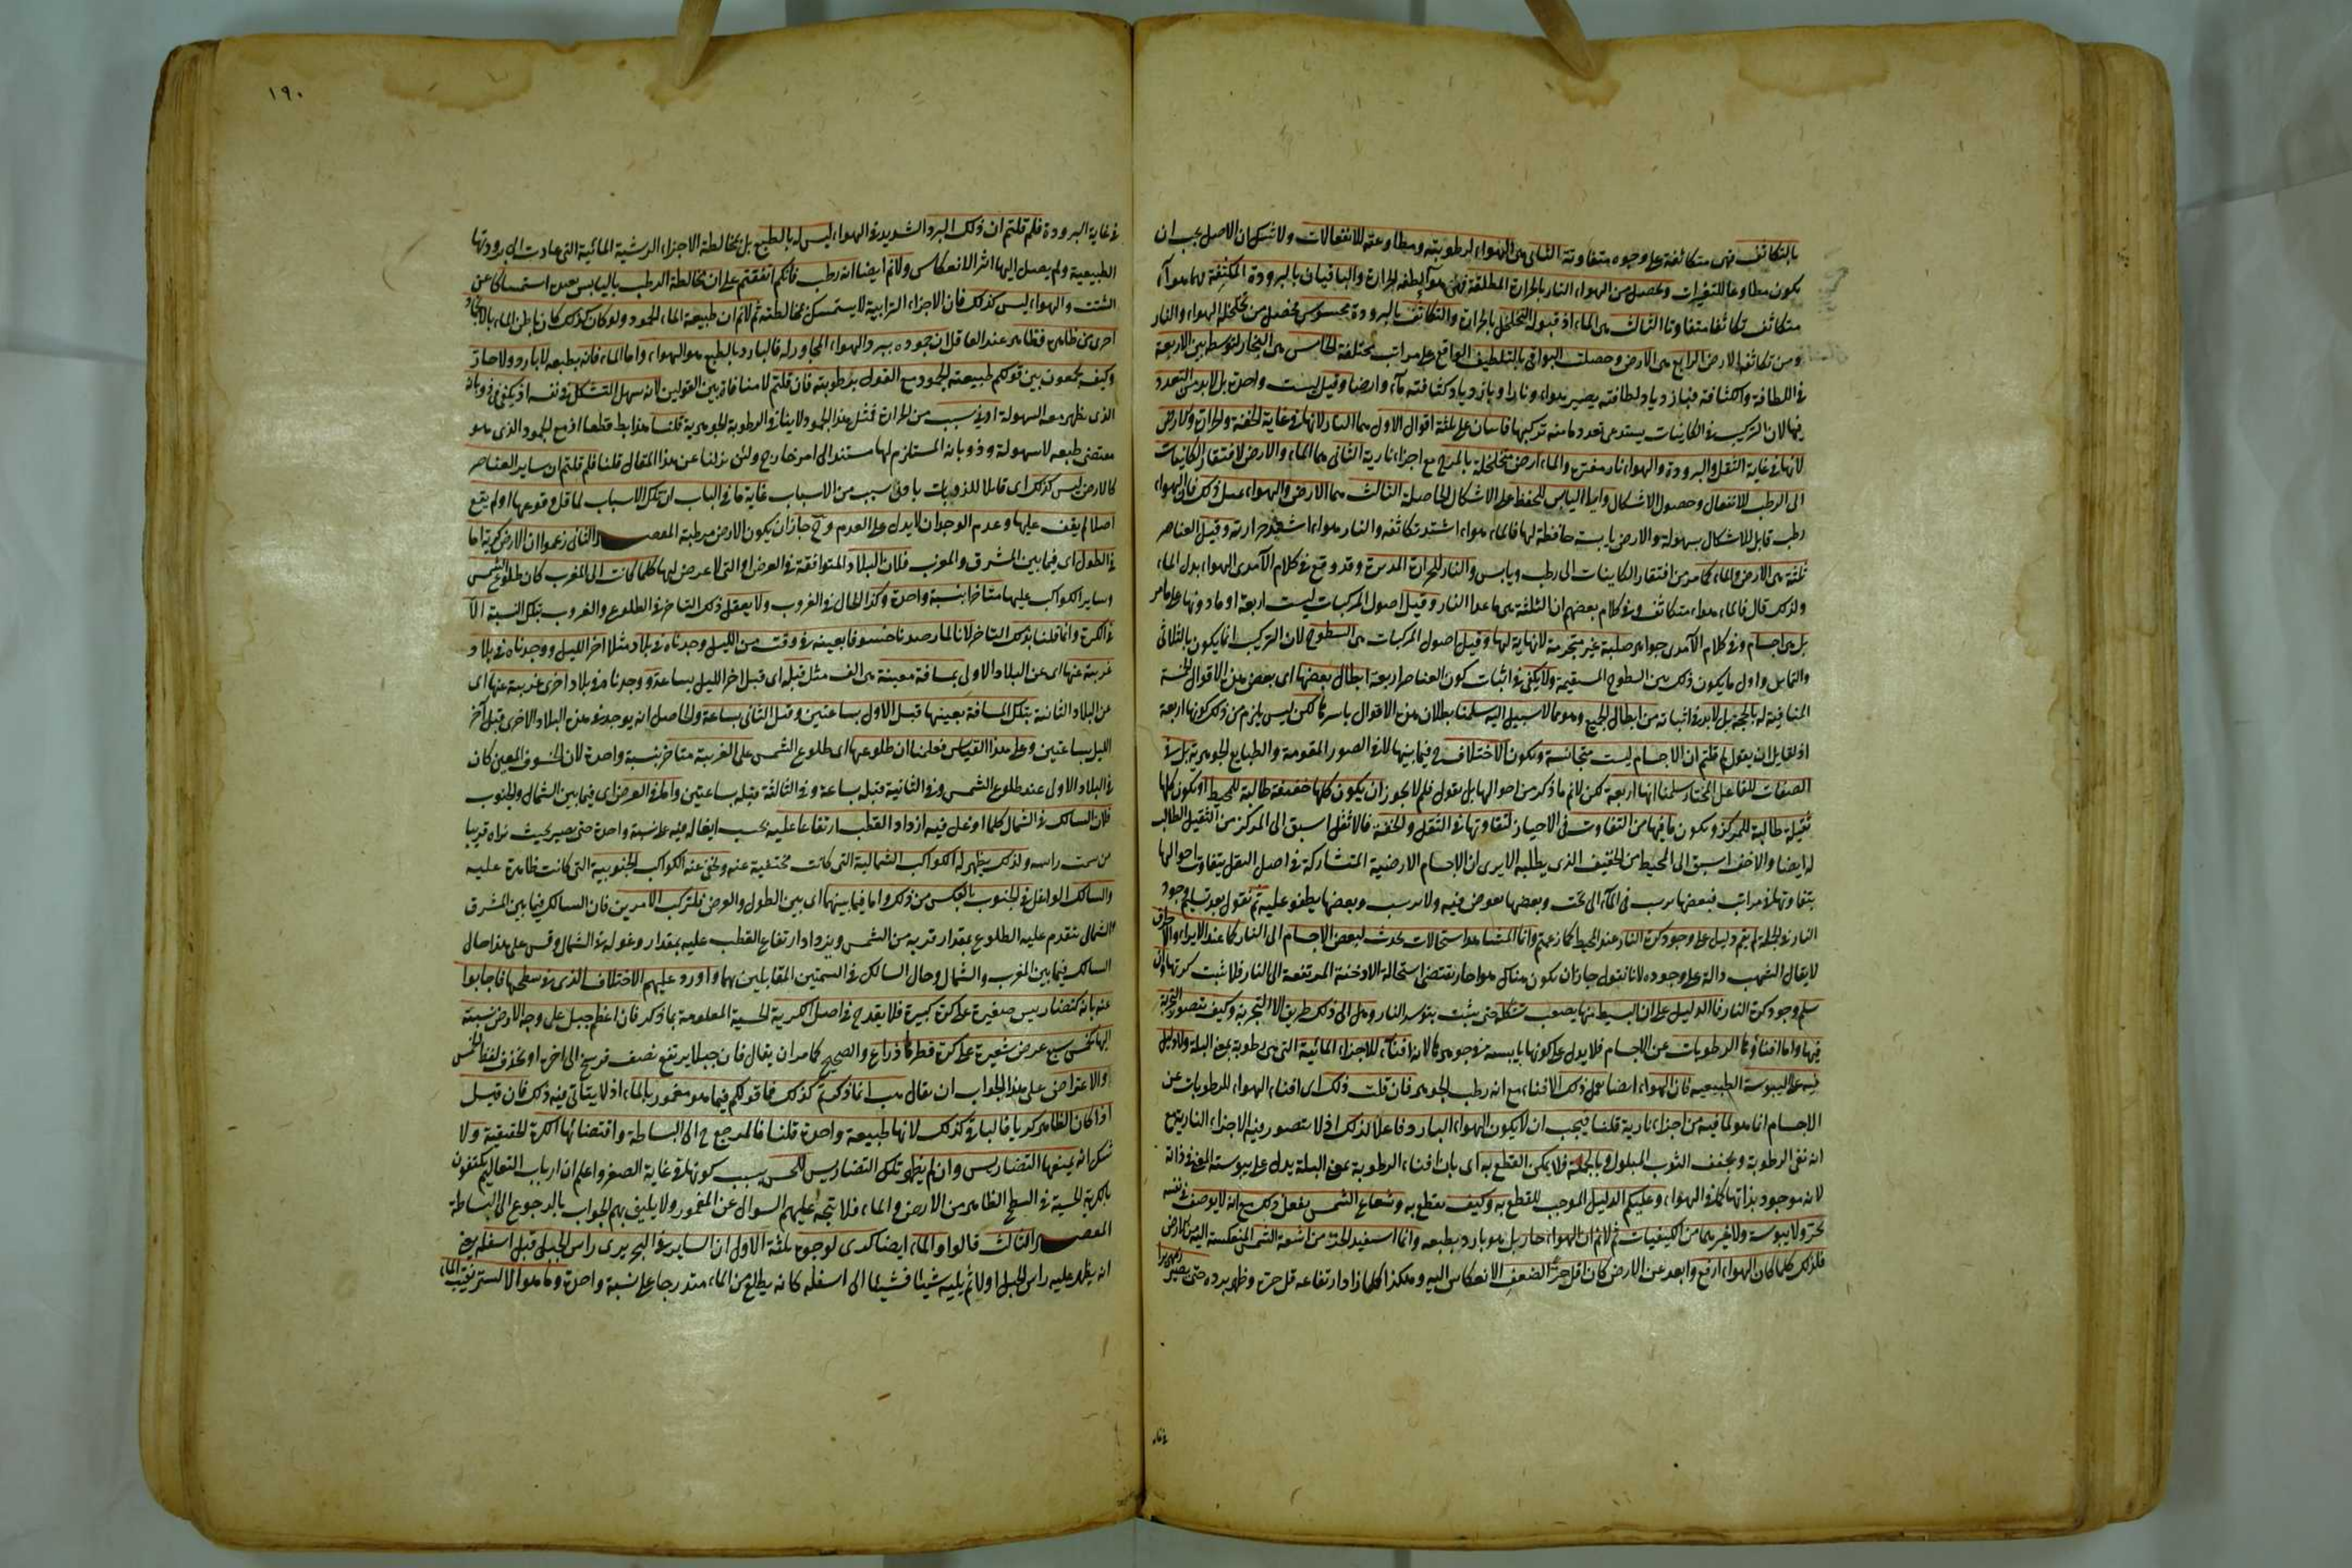 بالتكاثف فهى متكاثفة على وجوه متفاوتة الثانى هى الهواء لرطوبته ومطاوعته للانفعالات ولا شك ان الاصل يجب ان
يكون مطاوعا للتغيرات وتحصل من الهواء النار بالحرارة المطلقة فهى هوآ لطفه الحرارة والباقيان بالبرودة المكثفة لها هوآ
متكاثف تكاثفا متفاوتا الثالث هى الماء اذ قبوله التخلخل بالحرارة والتكاثف بالبرودة محسوس فحصل من تخلخله الهواء والنار
ومن تكاثفه الارض الرابع هى الارض وحصلت البواقى بالتلطيف الواقع على مراتب مختلفة الخامس هى البخار لتوسطه بين الاربعة
فى اللطافة والكثافة فبازدياد لطافته يصير هواء ونارا وبازدياد كثافته مآء وارضا وقيل ليست واحدة بل لابد من التعدد
فيها لان التركيب فى الكائنات يستدعى تعدد ما منه تركبها فاسان على ثلثة اقوال الاول هما النار لانها فى غاية الخفة والحرارة والارض
لانها فى غاية الثقل والبرودة والهواء نار مفترة والماء ارض متخلخلة بالمزج مع اجزاء نارية الثانى هما الماء والارض لافتقار الكائنات
الى الرطب للانفعال وحصول الاشكال والى اليابس للحفظ على الاشكال الحاصلة الثالث هما الارض والهواء بمثل ذلك فان الهواء
رطب قابل للاشكال بسهولة والارض يابسة حافظة لها فالماء هواء اشتد تكاثفه والنار هواء اشتد حرارته وقيل العناصر
ثلثة هى الارض والماء كما مر من افتقار الكاينات الى رطب ويابس والنار للحرارة المدبرة وقد وقع فى كلام الآمدى الهواء بدل الماء
ولذلك قال فالماء هواء متكاثف وفى كلام بعضهم ان الثلثة هى ما عدا النار وقيل اصول المركبات ليست اربعة او ما دونها على ما مر
بل هى اجسام وفى كلام الآمدى جواهر صلبة غير متجزية لانهاية لها وقيل اصول المركبات هى السطوح لان التركيب انما يكون بالتلاقى
والتماس واول ما يكون ذلك بين السطوح المستقيمة ولا يكفى فى اثبات كون العناصر اربعة ابطال بعضها اى بعض من الاقوال الخمسة
المنافية له بالحجة بل لابد فى اثباته من ابطال الجميع وهو مما لاسبيل اليه سلمنا بطلان هذه الاقوال باسرها لكن ليس يلزم من ذلك كونها اربعة
اذ لقايل ان يقول لم قلتم ان الاجسام ليست متجانسة ويكون الاختلاف فيما بينها لا فى الصور المقومة والطبايع الجوهرية بل فى
الصفات للفاعل المختار سلمنا انها اربعة لكن لانم ما ذكر من احوالها بل يقول فلم لا يجوز ان يكون كلها خفيفة طالبة للمحيط او يكون كلها
ثقيلة طالبة للمركز ويكون ما فيها من التفاوت فى الاحياز لتفاوتها فى الثقل والخفة فالاثقل اسبق الى المركز من الثقيل الطالب
له ايضا والاخف اسبق الى المحيط من الخفيف الذى يطلبه الا يرى ان الاجسام الارضية المتشاركة فى اصل الثقل يتفاوت احوالها
بتفاوتها فى مراتبه فبعضها يرسب فى المآء الى تحت وبعضها يغوص فيه ولا يرسب وبعضها يطفو عليه ثم نقول بعد تسليم وجود
النار فى الجملة لم يقم دليل على وجود كرة النار عند المحيط كما زعمتم وانما المشاهد استحالات تحدث لبعض الاجسام الى النار كما عند الايراء والاحراق
لا يقال الشهب دالة على وجوده لانا نقول جاز ان يكون هناك هواء حار يقتضى استحالة الادخنة المرتفعة الى النار فلا يثبت كرتها وان
سلم وجود كرة النار فما الدليل على ان البسيط منها يصعب تشكله حتى يثبت يبوسة النار وهل الى ذلك طريق الا التجربة وكيف يتصور التجربة
فيها واما افناؤها الرطوبات عن الاجسام فلا يدل على كونها يابسة فى جوهرها لانه افناء للاجزاء المائية التى هى رطوبة بمعنى البلة ولا دليل
فيه على اليبوسة الطبيعية فان الهواء ايضا يفعل ذلك الافناء مع انه رطب الجوهر فان قلت ذلك اى افناء الهواء للرطوبات عن
الاجسام انما هو لما فيه من اجزاء نارية قلنا فيجب ان لا يكون الهواء البارد فاعلا لذلك اذ لا يتصور فيه الاجزاء النارية مع
انه نفى الرطوبة ويجفف الثوب المبلول وبالجملة فلا يمكن القطع به اى بان افناء الرطوبة بمعنى البلة يدل على يبوسة المفنى فى ذاته
لانه موجود بذاتها كما فى الهواء وعليكم الدليل الموجب للقطع به وكيف يقطع به وشعاع الشمس يفعل ذلك مع انه لا يوصف فى نفسه
بحر ولا يبوسة ولا غيرهما من الكيفيات ثم لا نم ان الهواء حار بل هو بارد بطبعه وانما استفيد الحر من اشعة الشمس المنعكسة اليه من الارض
فلذلك كلما كان الهواء ارفع وابعد عن الارض كان اقل حرا لضعف الانعكاس اليه وهكذا كلما زاد ارتفاعه قل حره وظهر برده حتى يصير زمهريرا
١٩٠
فى غاية البرودة فلم قلتم ان ذلك البرد الشديد فى الهواء ليس له بالطبع بل بمخالطة الاجزاء الرشية المائية التى عادت الى برودتها
الطبيعية ولم يصل اليها اثر الانعكاس ولا نم ايضا انه رطب فانكم اتفقتم على ان مخالطة الرطب باليابس يفيد استمساكا عن
التشتت والهواء ليس كذلك فان الاجزاء الترابية لا يستمسك بمخالطته ثم لانم ان طبيعة الماء الجمود ولو كان كذلك كان باطن الماء بالانجماد
احرى من ظاهره فظاهر عند العاقل ان جموده ببرد الهواء المجاور له فالبارد بالطبع هو الهواء واما الماء فانه بطبعه لا بارد ولا حار
وكيف تجمعون بين قولكم طبيعته الجمود مع القول برطوبته فان قلتم لا منافاة بين القولين لانه سهل التشكل فى نفسه اذ يكفى فى ذوبانه
الذى يظهر معه السهولة ادنى سبب من الحرارة فمثل هذا الجمود لا ينافى الرطوبة الجوهرية قلنا هذا بط قطعا اذ مع الجمود الذى هو
مقتضى طبعه لا سهولة وذوبانه المستلزم لها مستند الى امر خارج ولئن نزلنا عن هذا المقال قلنا فلم قلتم ان ساير العناصر
كالارض ليس كذلك اى قابلا للذوبان بادنى سبب من الاسباب غاية ما فى الباب ان تلك الاسباب لما قل وقوعها او لم يقع
اصلا لم يقف عليها وعدم الوجدان لا يدل على العدم وح جاز ان يكون الارض مرطبة المقصد الثانى زعموا ان الارض كرية اما
فى الطول اى فيما بين المشرق والمغرب فلان البلاد المتوافقة فى العرض او التى لا عرض لها كلما كانت الى المغرب كان طلوع الشمس
وساير الكواكب عليها متاخرا بنسبة واحدة وكذا الحال فى الغروب ولا يعقل ذلك التاخر فى الطلوع والغروب بتلك النسبة الا
فى الكرة وانما قلنا بذلك التاخر لانا لما رصدنا خسوفا بعينه فى وقت من الليل وجدناه فى بلاد مثلا اخر الليل ووجدناه فى بلاد
غربية عنها اى عن البلاد الاولى بمسافة معينة هى الف مثل قبله اى قبل اخر الليل بساعة ووجدناه فى بلاد اخرى غربية عنها اى
عن البلاد الثانية بتلك المسافة بعينها قبل الاول بساعتين وقبل الثانى بساعة والحاصل انه يوجد فى هذه البلاد الاخرى قبل آخر
الليل بساعتين وعلى هذا القياس فعلمنا ان طلوعها اى طلوع الشمس على الغربية متاخر بنسبة واحدة لان الخسوف المعين كان
فى البلاد الاولى عند طلوع الشمس وفى الثانية قبله بساعة وفى الثالثة قبله بساعتين واما فى العرض اى فيما بين الشمال والجنوب
فلان السالك فى الشمال كلما اوغل فيه ازداد القطب ارتفاعا عليه بحسب ايغاله فيه على نسبة واحدة حتى يصير بحيث يراه قريبا
من سمت راسه ولذلك يظهر له الكواكب الشمالية التى كانت مختفية عنه وتخفى عنه الكواكب الجنوبية التى كانت ظاهرة عليه
والسالك الواغل فى الجنوب بالعكس من ذلك واما فيما بينهما اى بين الطول والعرض فلتركب الامرين فان السالك فيما بين المشرق
والشمال يتقدم عليه الطلوع بمقدار قربه من الشمس ويزداد ارتفاع القطب عليه بمقدار وغوله فى الشمال وقس على هذا حال
السالك فيما بين المغرب والشمال وحال السالك فى السمتين المقابلين لهما واورد عليهم الاختلاف الذى فى سطحها فاجابوا
عنه بانه كتضاريس صغيرة على كرة كبيرة فلا يقدح فى اصل الكرية الحسية المعلومة بما ذكر فان اعظم جبل على وجه الارض نسبته
اليها كخمس سبع عرض شعيرة على كرة قطرها ذراع والصحيح كما مر ان يقال فان جبلا يرتفع نصف فرسخ الى اخره او تحذف لفظ الخمس
والاعتراض على هذا الجواب ان يقال هب انما ذكرتم كذلك فما قولكم فيما هو مغمور بالماء اذ لا يتاتى فيه ذلك فان قيل
اذا كان الظاهر كريا فالباقى كذلك لانها طبيعة واحدة قلنا فالمرجع ح الى البساطة واقتضائها الكرة الحقيقية ولا
شك انه يمنعها التضاريس وان لم يظهر تلك التضاريس للحس بسبب كونها فى غاية الصغر واعلم ان ارباب التعاليم يكتفون
بالكرية الحسية فى السطح الظاهر من الارض والماء فلا يتجه عليهم السوال عن المغمور ولا يليق بهم الجواب بالرجوع الى البساطة
المقصد الثالث قالوا والماء ايضا كرى لوجوه ثلثة الاول ان الساير فى البحر يرى راس الجبل قبل اسفله يعنى
انه يظهر عليه راس الجبل اولا ثم يليه شيئا فشيئا الى اسفله كانه يطلع من الماء متدرجا على نسبة واحدة وما هو الا لستر تقبيب الماء